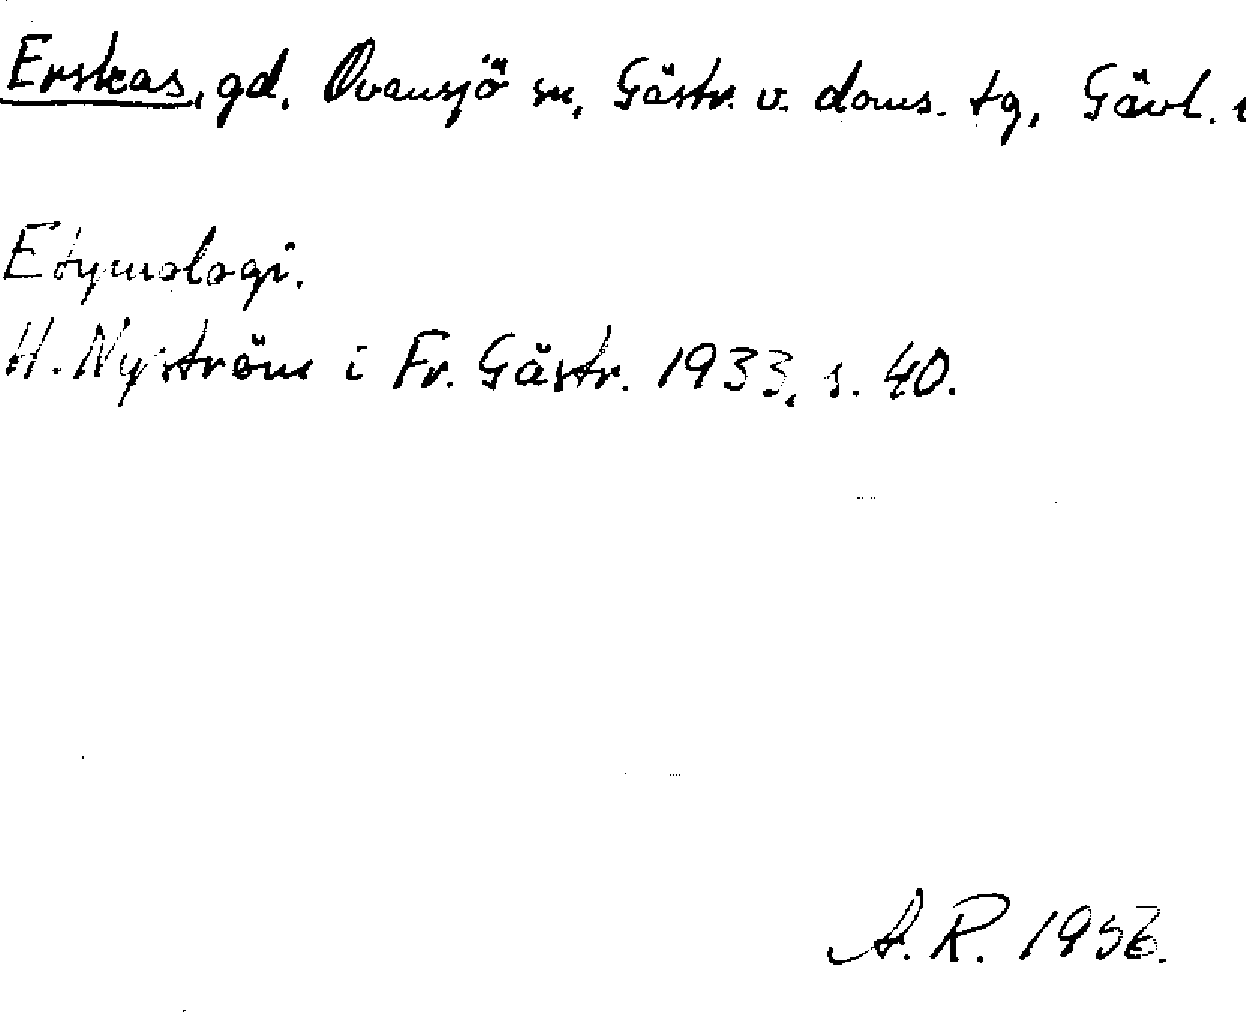 Erskas, gd. Ovansjö sn, Gästr. v. doms. tg, Gävl.
Etymologi.
H. Nyström i Fr. Gästr. 1933, s. 40.
A. R. 1956.